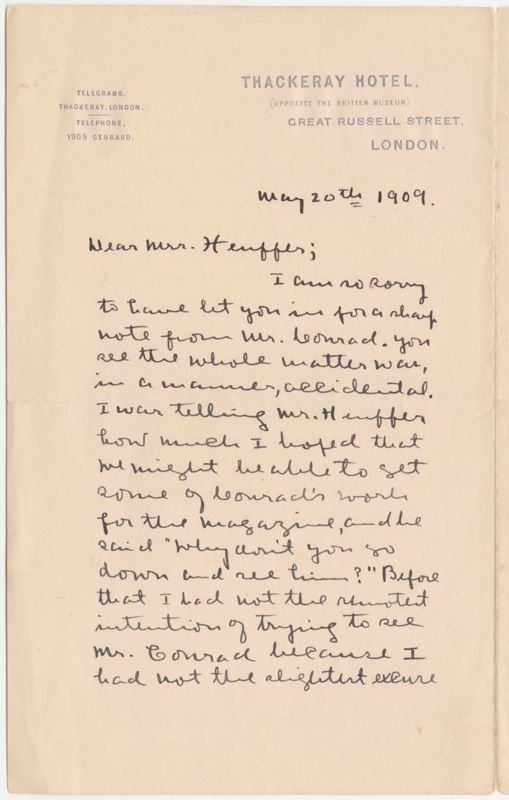 TELEGRAMS,
THACKERAY, LONDON.
TELEPHONE,
1905 GERRARD.
THACKERAY HOTEL,
(OPPOSITE THE BRITISH MUSEUM)
GREAT RUSSELL STREET,
LONDON.
May 20th 1909.
Dear Mrs. Heuffer;
I am so sorry
to have let you in for a sharp
note from Mr. Conrad. You
see the whole matter was,
in a manner, accidental.
I was telling Mr. Heuffer
how much I hoped that
we might be able to get
some of Conrad's work
for the magazine, and he
said "Why don't you go
down and see him?" Before
that I had not the remotest
intention of trying to see
Mr. Conrad because I
had not the slightest excuse